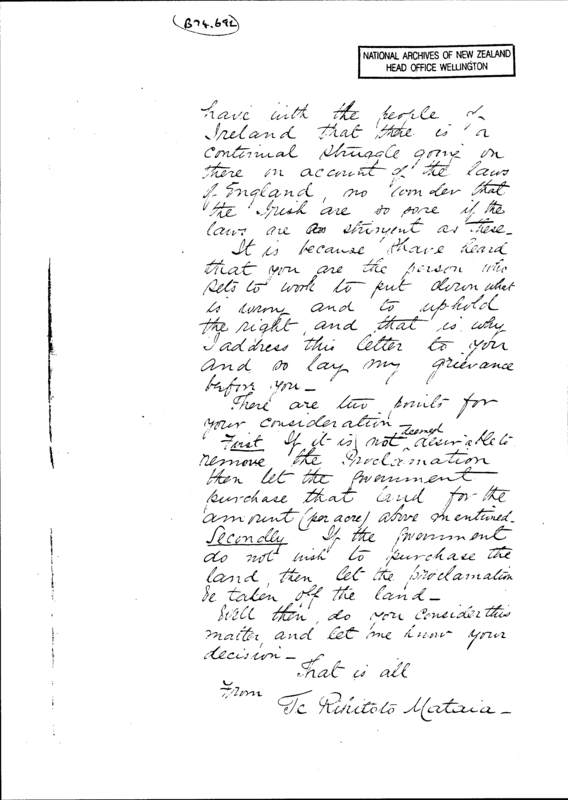 B74.692
NATIONAL ARCHIVES OF NEW ZEALAND
HEAD OFFICE WELLINGTON
have with the people of
Ireland that there is a
continual struggle going on
there on account of the laws
of England, no wonder that
the Irish are so sore if the
laws are as stringent as these—
It is because I have heard
that you are the person who
sets to work to put down what
is wrong and to uphold
the right, and that is why
I address this letter to you
and so lay my grievance
before you—
There are two points for
your consideration
First If it is not deemed desirable to
remove the Proclamation
then let the Government
purchase that land for the
amount (per acre) above mentioned—
Secondly If the Government
do not wish to purchase the
land, then let the proclamation
be taken off the land—
Well then, do you consider this
matter, and let me know your
decision—
That is all
From
Te Rihitoto Mataia—